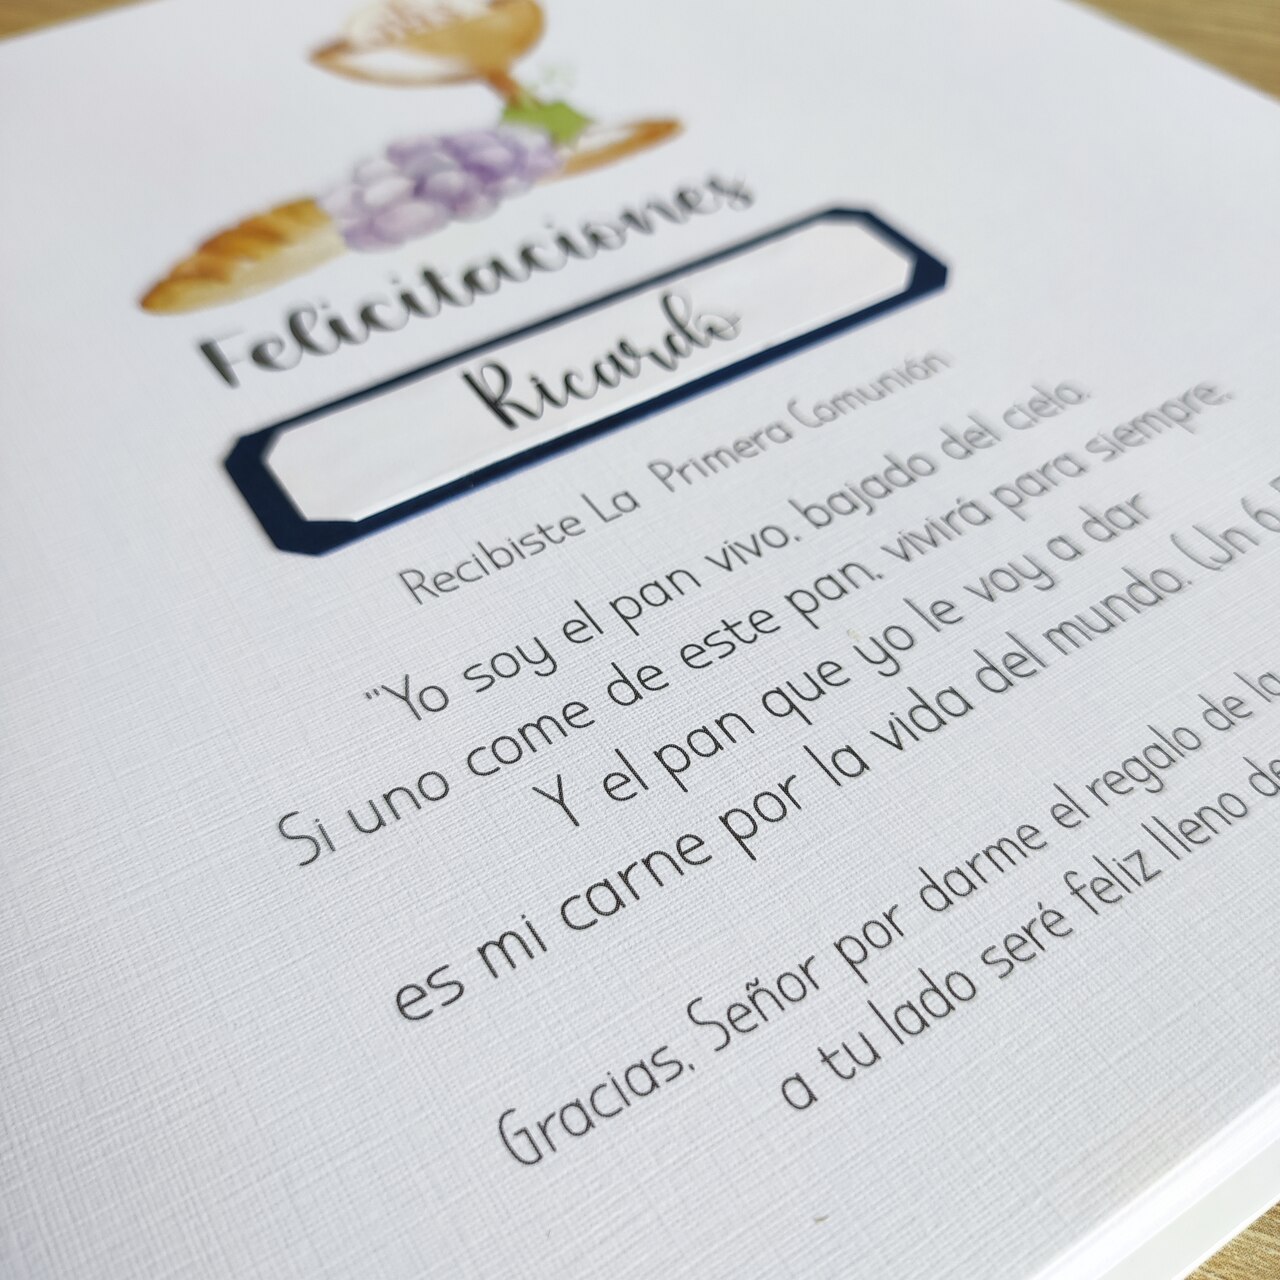 Felicitaciones
Ricardo
Recibiste La Primera Comunión
"Yo soy el pan vivo, bajado del cielo.
Si uno come de este pan, vivirá para siempre.
Y el pan que yo le voy a dar
es mi carne por la vida del mundo. (Jn 6,
Gracias, Señor por darme el regalo de la
a tu lado seré feliz lleno de